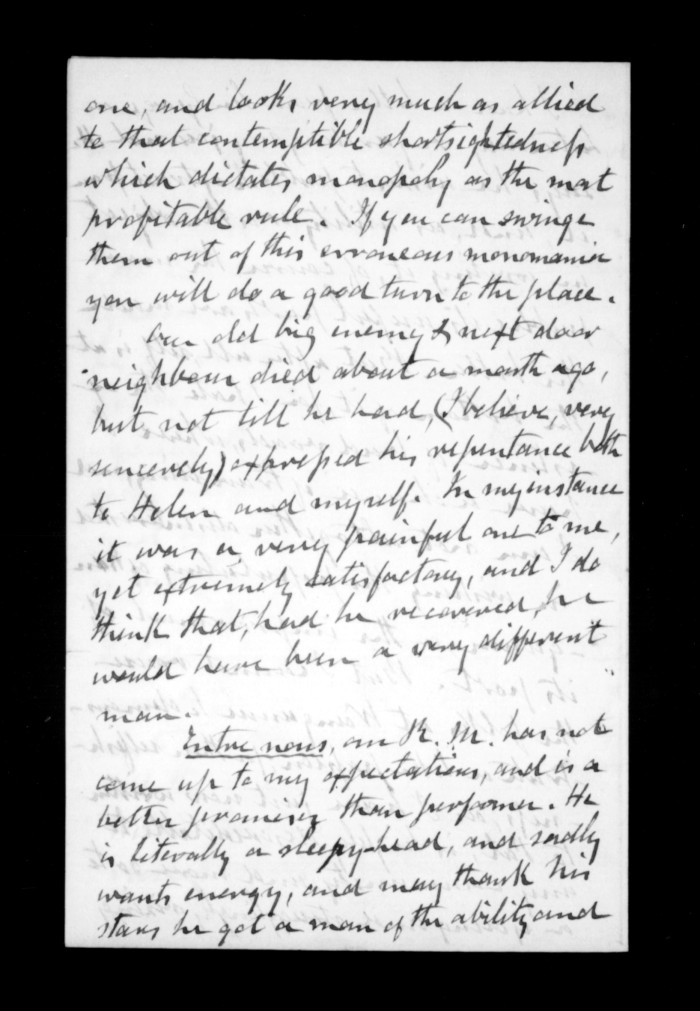 one, and looks very much as allied
to that contemptible shortsightedness
which dictates monopoly as the most
profitable rule. If you can swinge
them out of this erroneous monomania
you will do a good turn to the place.
Our old big enemy & next door
neighbour died about a month ago,
but not till he had, (I believe, very
sincerely) expressed his repentance both
to Helen and myself. In my instance
it was a very painful one to me,
yet extremely satisfactory, and I do
think that, had he recovered, he
would have been a very different
man.
Entre nous, our R. M. has not
come up to my expectations, and is a
better promiser than performer. He
is literally a sleepy-head, and sadly
wants energy, and may thank his
stars he got a man of the ability and